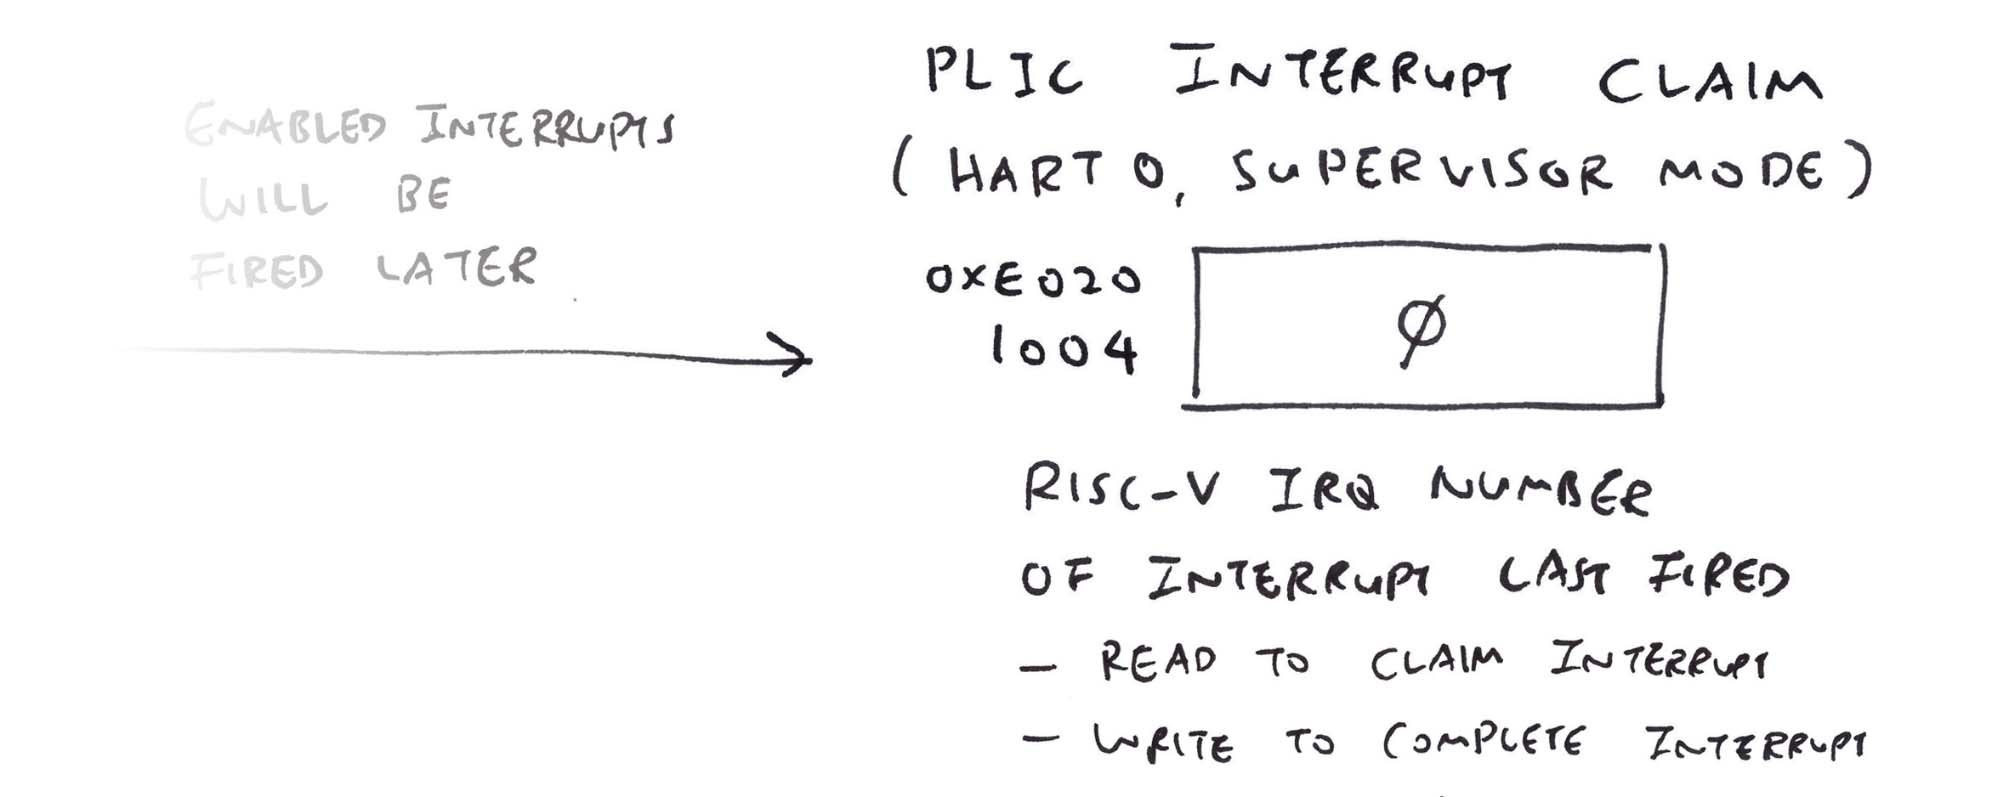 ENABLED INTERRUPTS
WILL BE
FIRED LATER
PLIC INTERRUPT CLAIM
(HART 0, SUPERVISOR MODE)
0XE020
1004
Ø
RISC-V IRQ NUMBER
OF INTERRUPT LAST FIRED
- READ TO CLAIM INTERRUPT
- WRITE TO COMPLETE INTERRUPT